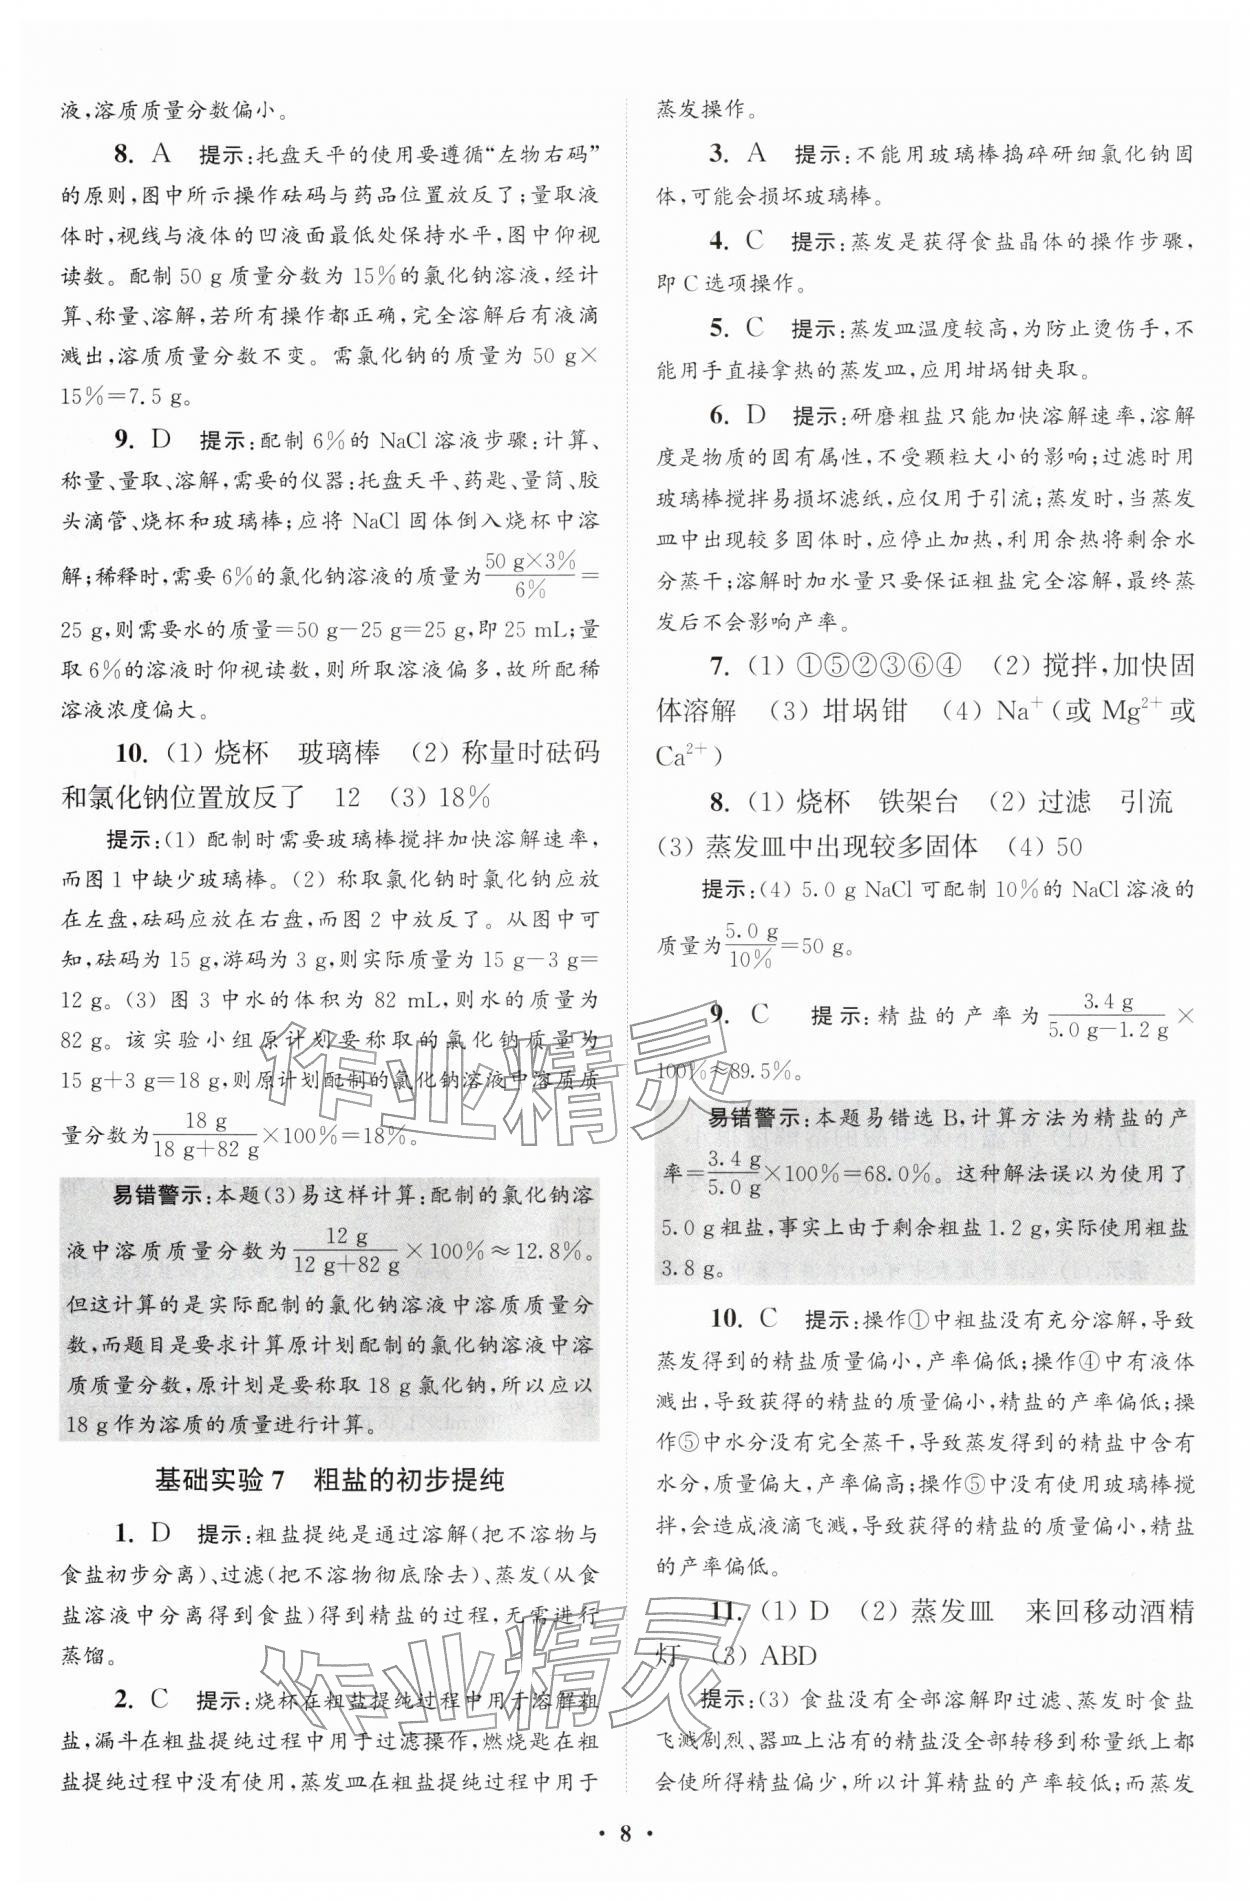 液,溶质质量分数偏小。
8. A 提示:托盘天平的使用要遵循“左物右码”
的原则,图中所示操作砝码与药品位置放反了;量取液
体时,视线与液体的凹液面最低处保持水平,图中仰视
读数。配制 50 g 质量分数为 15%的氯化钠溶液,经计
算、称量、溶解,若所有操作都正确,完全溶解后有液滴
溅出,溶质质量分数不变。需氯化钠的质量为 50 g×
15%=7.5 g。
9. D 提示:配制 6%的 NaCl 溶液步骤:计算、
称量、量取、溶解,需要的仪器:托盘天平、药匙、量筒、胶
头滴管、烧杯和玻璃棒;应将 NaCl 固体倒入烧杯中溶
解;稀释时,需要 6%的氯化钠溶液的质量为 50 g×3%/6% =
25 g,则需要水的质量=50 g-25 g=25 g,即 25 mL;量
取 6%的溶液时仰视读数,则所取溶液偏多,故所配稀
溶液浓度偏大。
10. (1) 烧杯 玻璃棒 (2) 称量时砝码
和氯化钠位置放反了 12 (3) 18%
提示:(1) 配制时需要玻璃棒搅拌加快溶解速率,
而图 1 中缺少玻璃棒。(2) 称取氯化钠时氯化钠应放
在左盘,砝码应放在右盘,而图 2 中放反了。从图中可
知,砝码为 15 g,游码为 3 g,则实际质量为 15 g-3 g=
12 g。(3) 图 3 中水的体积为 82 mL,则水的质量为
82 g。该实验小组原计划要称取的氯化钠的质量为
15 g+3 g=18 g,则原计划配制的氯化钠溶液中溶质质
量分数为 18 g/18 g+82 g ×100%=18%。
易错警示:本题(3)易这样计算:配制的氯化钠溶
液中溶质质量分数为 12 g/12 g+82 g ×100%≈12.8%。
但这计算的是实际配制的氯化钠溶液中溶质质量分
数,而题目是要求计算原计划配制的氯化钠溶液中溶
质质量分数,原计划是要称取 18 g 氯化钠,所以应以
18 g 作为溶质的质量进行计算。
基础实验 7 粗盐的初步提纯
1. D 提示:粗盐提纯是通过溶解(把不溶物与
食盐初步分离)、过滤(把不溶物彻底除去)、蒸发(从食
盐溶液中分离得到食盐)得到精盐的过程,无需进行
蒸馏。
2. C 提示:烧杯在粗盐提纯过程中用于溶解粗
盐,漏斗在粗盐提纯过程中用于过滤操作,燃烧匙在粗
盐提纯过程中没有使用,蒸发皿在粗盐提纯过程中用于
蒸发操作。
3. A 提示:不能用玻璃棒捣碎研细氯化钠固
体,可能会损坏玻璃棒。
4. C 提示:蒸发是获得食盐晶体的操作步骤,
即 C 选项操作。
5. C 提示:蒸发皿温度较高,为防止烫伤手,不
能用手直接拿热的蒸发皿,应用坩埚钳夹取。
6. D 提示:研磨粗盐只能加快溶解速率,溶解
度是物质的固有属性,不受颗粒大小的影响;过滤时用
玻璃棒搅拌易损坏滤纸,应仅用于引流;蒸发时,当蒸发
皿中出现较多固体时,应停止加热,利用余热将剩余水
分蒸干;溶解时加水量只要保证粗盐完全溶解,最终蒸
发后不会影响产率。
7. (1) ①⑤②③⑥④ (2) 搅拌,加快固
体溶解 (3) 坩埚钳 (4) Na⁺(或 Mg²⁺或
Ca²⁺)
8. (1) 烧杯 铁架台 (2) 过滤 引流
(3) 蒸发皿中出现较多固体 (4) 50
提示:(4) 5.0 g NaCl 可配制 10%的 NaCl 溶液的
质量为 5.0 g/10% =50 g。
9. C 提示:精盐的产率为 3.4 g/5.0 g-1.2 g ×
100%≈89.5%。
易错警示:本题易错选 B,计算方法为精盐的产
率= 3.4 g/5.0 g ×100%=68.0%。这种解法误以为使用了
5.0 g 粗盐,事实上由于剩余粗盐 1.2 g,实际使用粗盐
3.8 g。
10. C 提示:操作①中粗盐没有充分溶解,导致
蒸发得到的精盐质量偏小,产率偏低;操作④中有液体
溅出,导致获得的精盐的质量偏小,精盐的产率偏低;操
作⑤中水分没有完全蒸干,导致蒸发得到的精盐中含有
水分,质量偏大,产率偏高;操作⑤中没有使用玻璃棒搅
拌,会造成液滴飞溅,导致获得的精盐的质量偏小,精盐
的产率偏低。
11. (1) D (2) 蒸发皿 来回移动酒精
灯 (3) ABD
提示:(3) 食盐没有全部溶解即过滤、蒸发时食盐
飞溅剧烈、器皿上沾有的精盐没全部转移到称量纸上都
会使所得精盐偏少,所以计算精盐的产率较低;而蒸发
· 8 ·
作业精灵
作业精灵